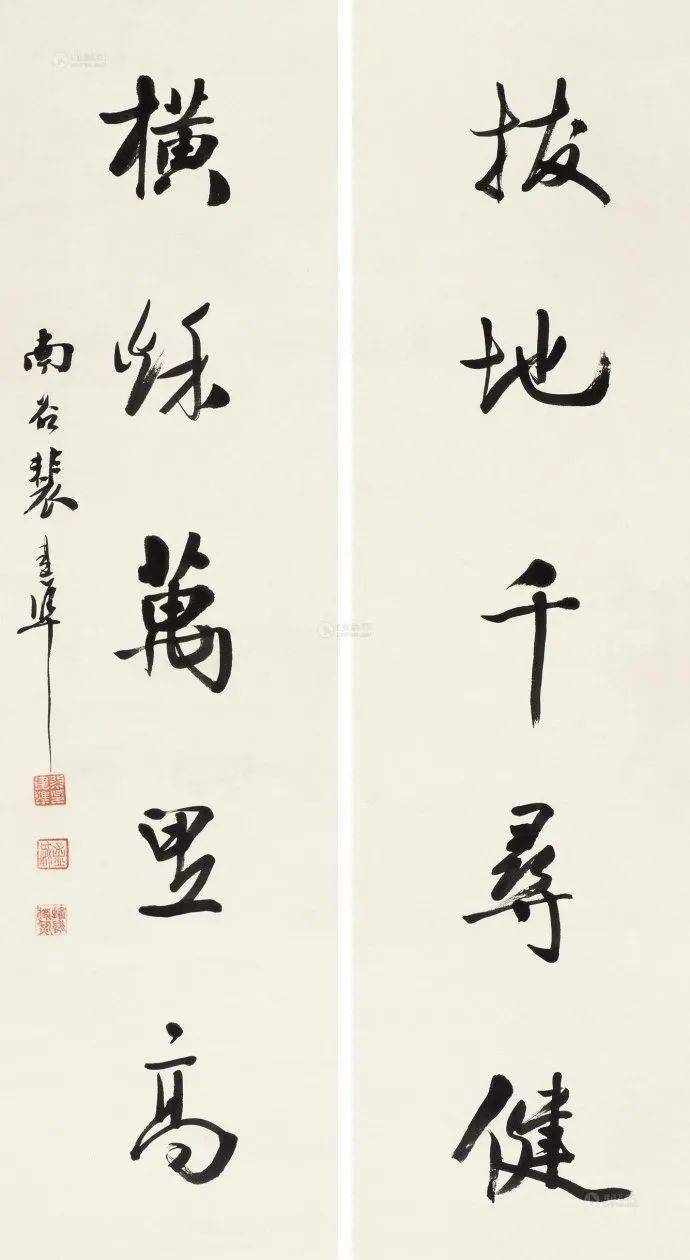 拔地千尋健
橫秋萬里高
南谷裴建準